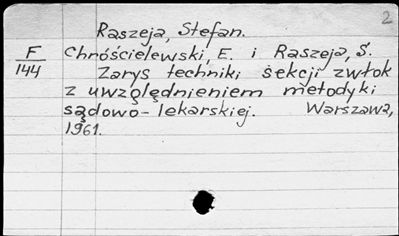 2
Raszeja, Stefan.
F
144
Chróścielewski, E. i Raszeja, S.
Zarys techniki sekcji zwłok
z uwzględnieniem metodyki
sądowo-lekarskiej. Warszawa,
1961.